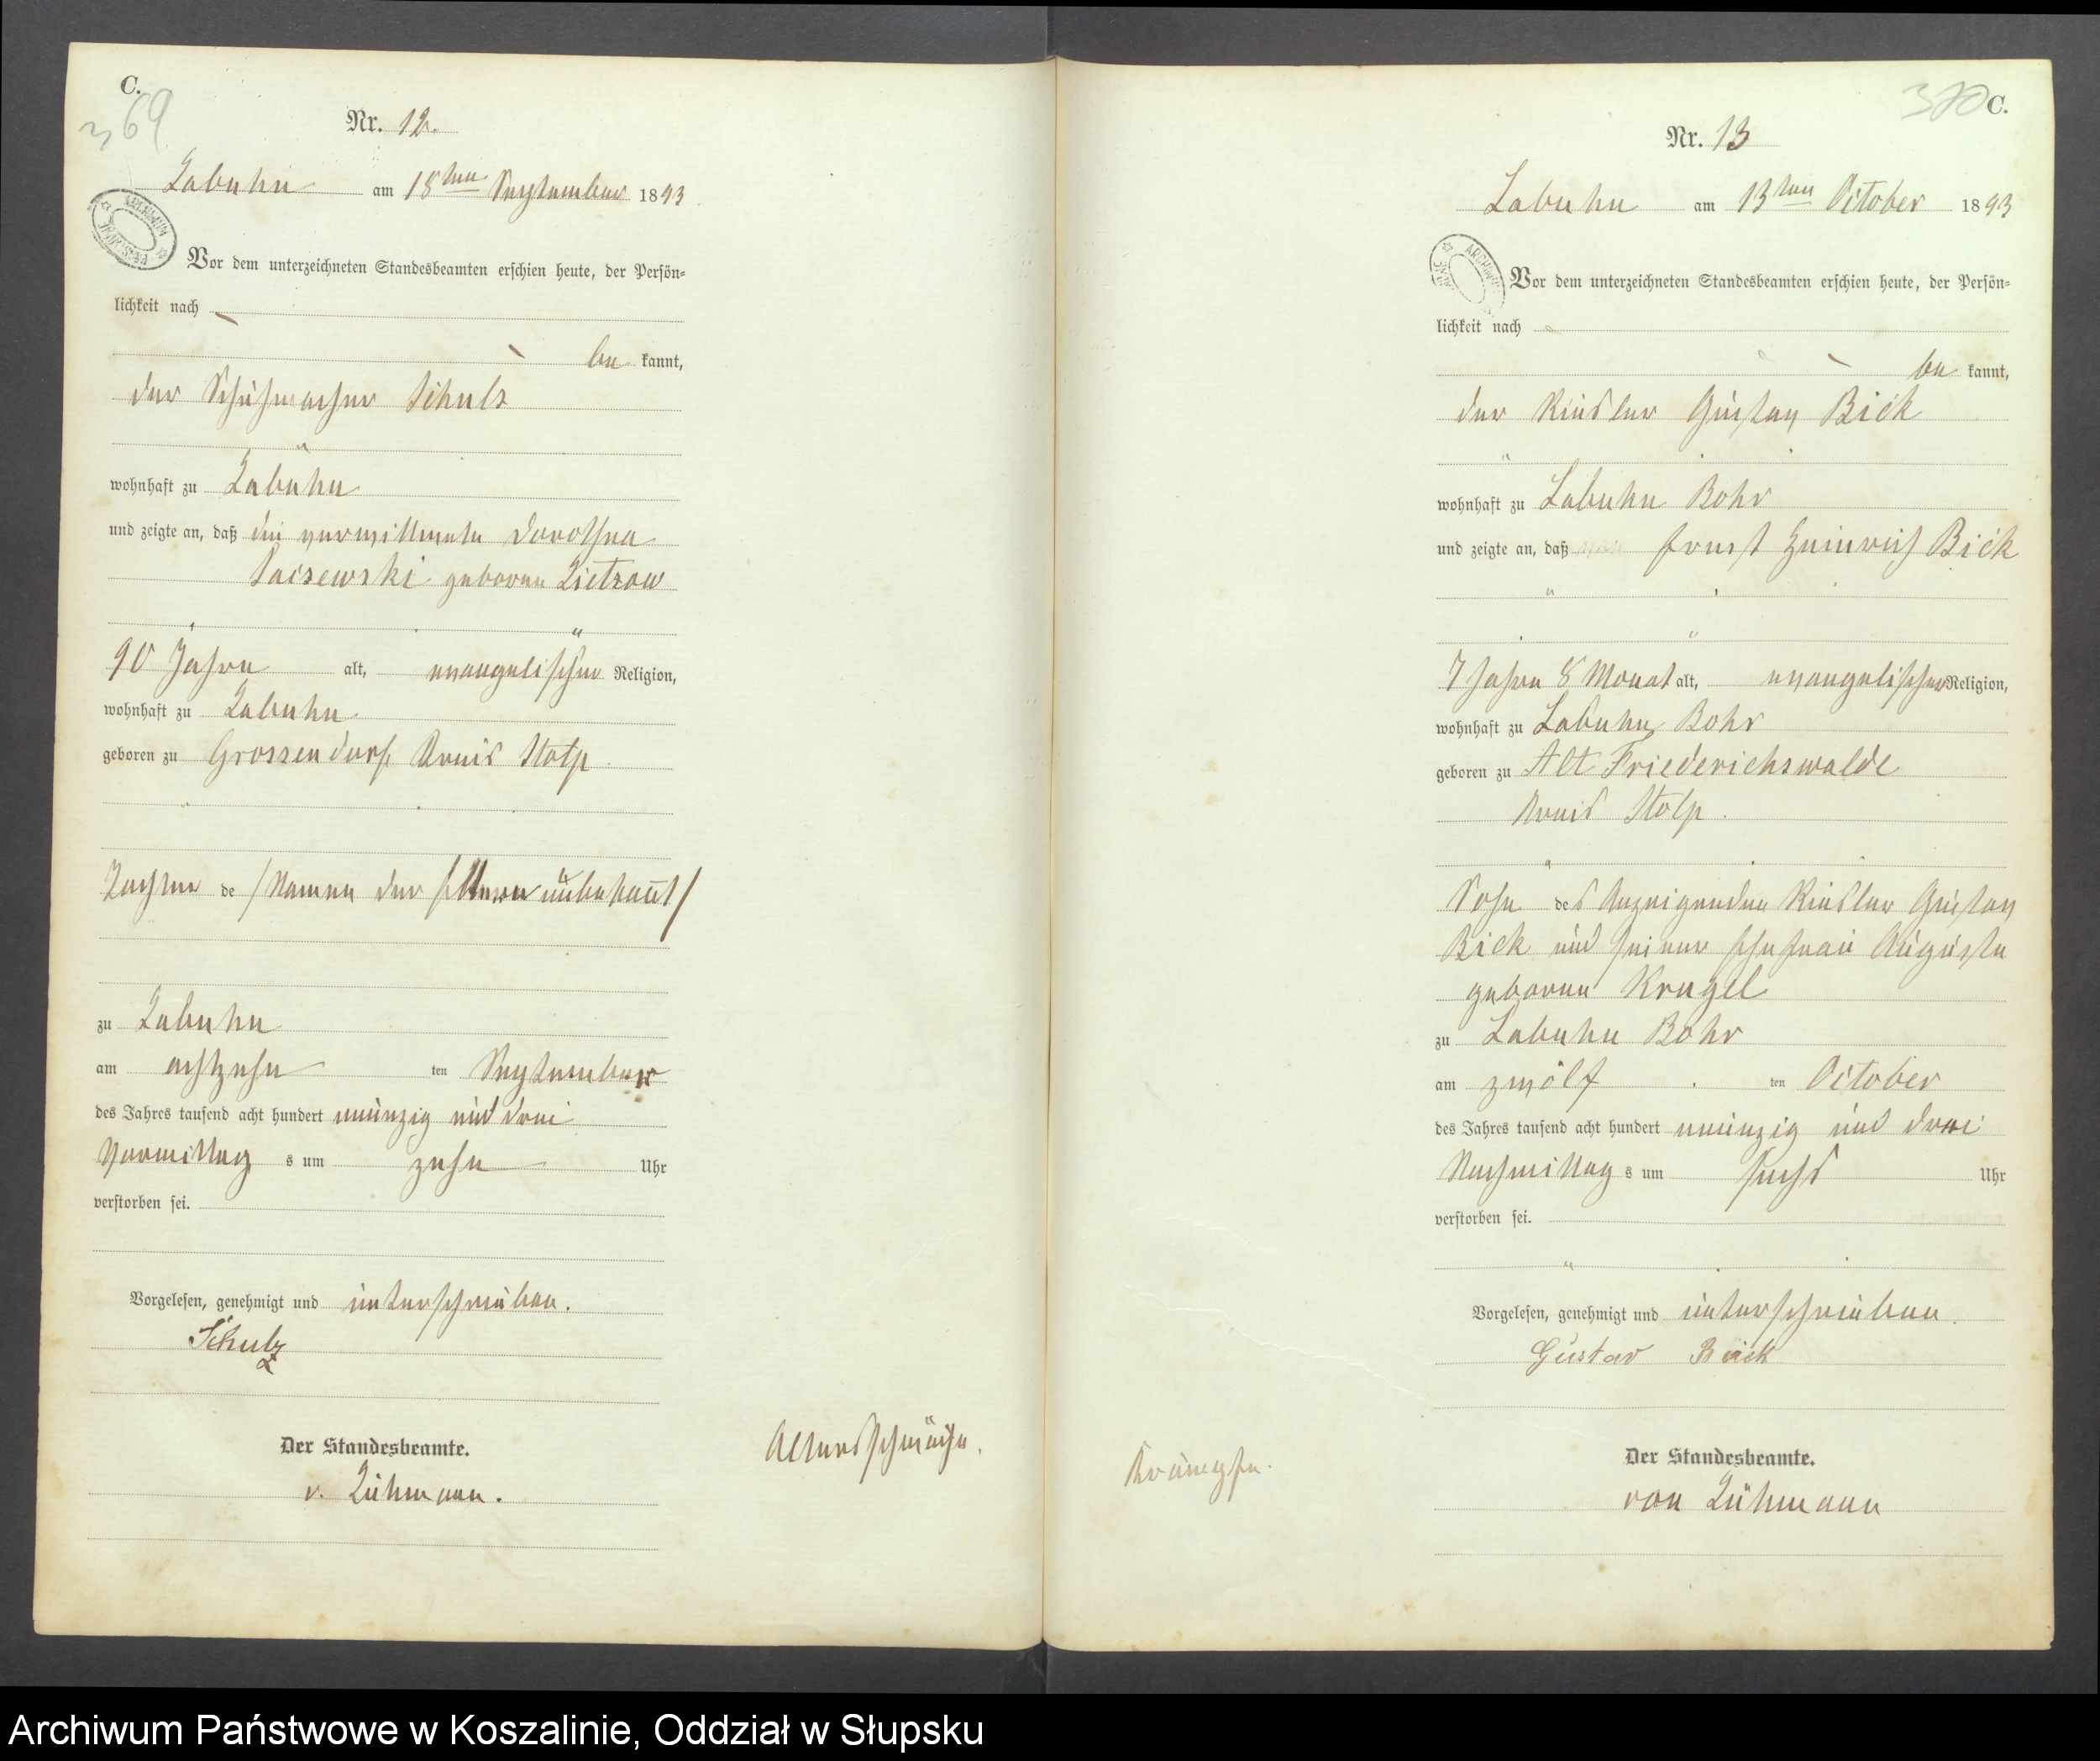 C.
369
Nr. 12.
Labuhn am 18ten September 1893
Vor dem unterzeichneten Standesbeamten erschien heute, der Persön=
lichkeit nach
be kannt,
der Schuhmacher Schulz
wohnhaft zu Labuhn
und zeigte an, daß die verwittwete Dorothea
geboren Zietzow
90 Jahre alt, evangelischer Religion,
wohnhaft zu Labuhn
geboren zu Grossendorf Kreis Stolp
Tochter de /Namen der Eltern unbekant/
zu Labuhn
am achtzehn ten September
des Jahres tausend acht hundert neunzig und drei
Vormittag s um zehn Uhr
verstorben sei.
Vorgelesen, genehmigt und unterschrieben.
Schulz
Der Standesbeamte.
v. Lühmann.
Altersschwäche.
370 C.
Nr. 13
Labuhn am 13ten October 1893
Vor dem unterzeichneten Standesbeamten erschien heute, der Persön=
lichkeit nach
be kannt,
der Gustav Bick
wohnhaft zu Labuhn Bohr
und zeigte an, daß Ernst Heinrich Bick
7 Jahre 8 Monat alt, evangelischer Religion,
wohnhaft zu Labuhn Bohr
geboren zu Alt Friederichswalde
Kreis Stolp.
Sohn des Anzeigenden Gustav
Bick und seiner Ehefrau Auguste
geboren Krugel
zu Labuhn Bohr
am zwölf ten October
des Jahres tausend acht hundert neunzig und drei
Nachmittag s um sechs Uhr
verstorben sei.
Vorgelesen, genehmigt und unterschrieben.
Gustav Bick
Der Standesbeamte.
von Lühmann
Krämpfe.
Archiwum Państwowe w Koszalinie, Oddział w Słupsku